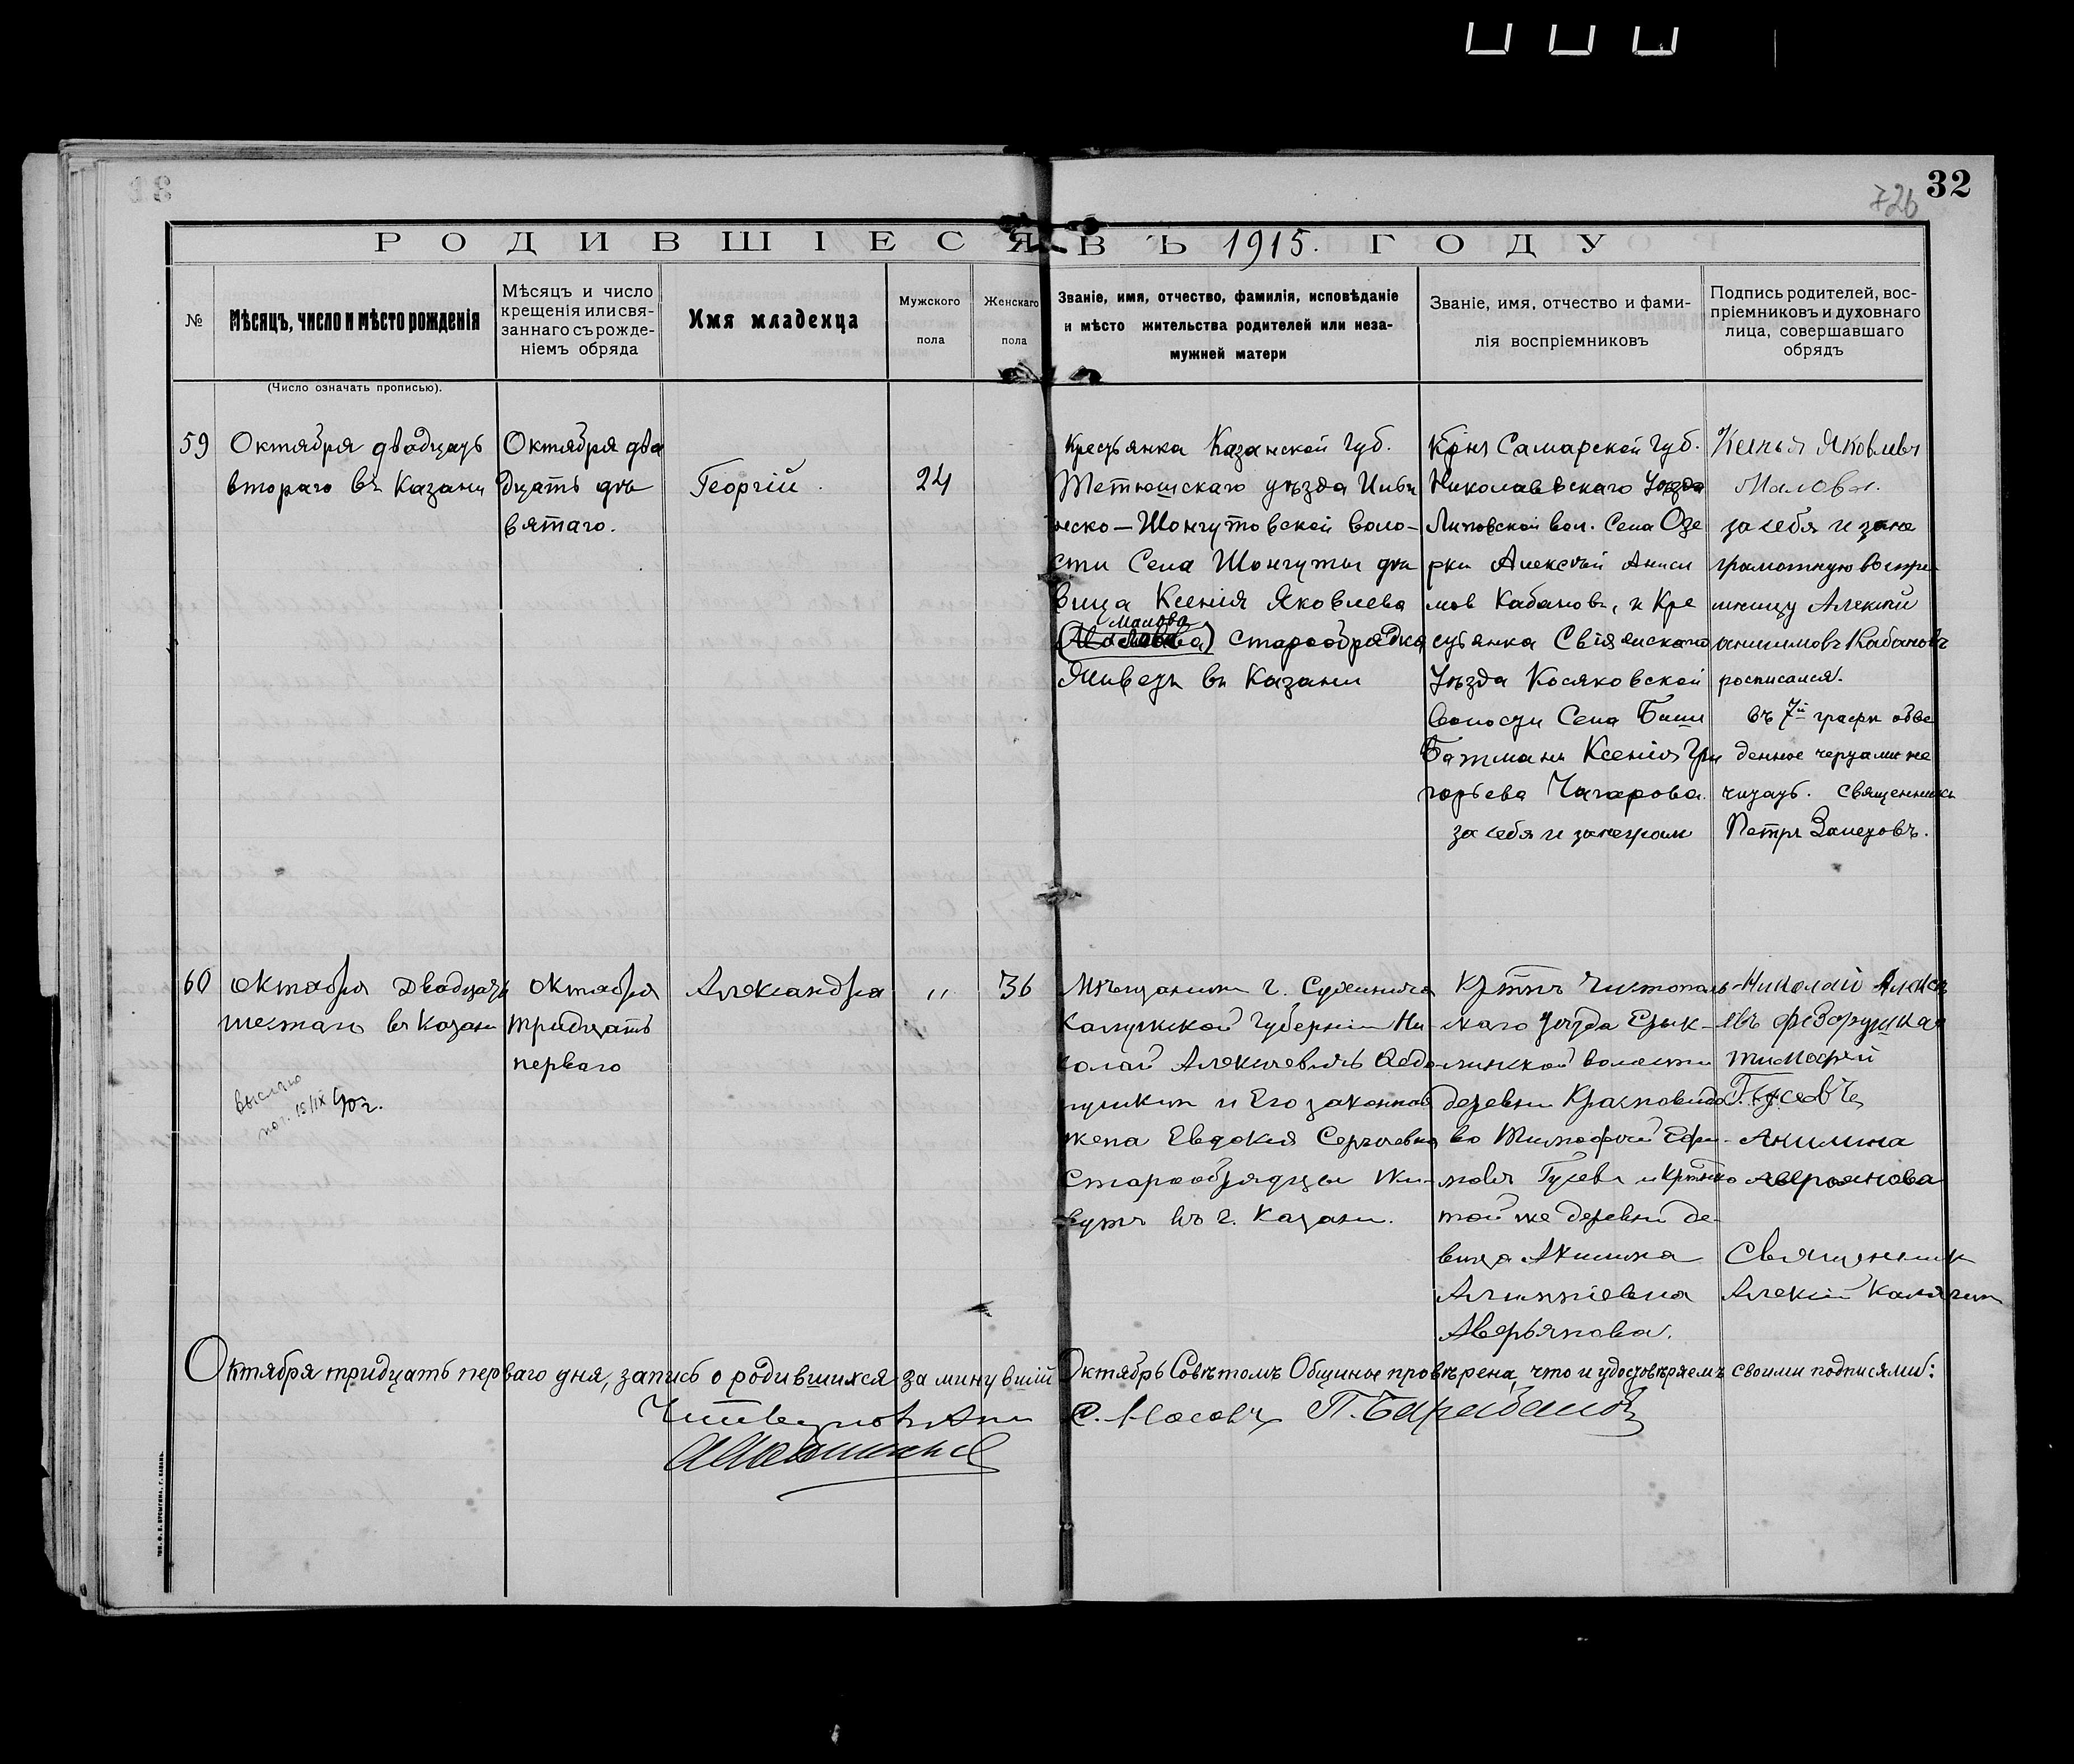 32
726
РОДИВШІЕСЯ ВЪ 1915. ГОДУ
№
Мѣсяцъ, число и мѣсто рожденія
(Число означать прописью).
Мѣсяцъ и число
крещенія или свя-
заннаго съ рожде-
ніемъ обряда
Имя младенца
Мужского
пола
Женскаго
пола
Званіе, имя, отчество, фамилія, исповѣданіе
и мѣсто жительства родителей или неза-
мужней матери
Званіе, имя, отчество и фами-
лія воспріемниковъ
Подпись родителей, вос-
пріемниковъ и духовнаго
лица, совершавшаго
обрядъ
59
Октября двадцать
втораго въ Казани
Октября два
дцать де
вятаго.
Георгій.
24
Крестьянка Казанской губ.
Тетюшскаго уѣзда
Шонгутовской воло-
сти Села Шонгуты дѣ
вица Ксенія Яковлева
Малова
старообрядка
Живетъ въ Казани
Крнъ Самарской губ.
Николаевскаго Уѣзда
Липовской вол. Села Озе
рки Алексѣй Аниси
мов Кабановъ, и Кре
стьянка Свіяжскаго
Уѣзда Косяковской
волости Села Биш
Батмана Ксенія Гри
горьева Чагарова.
за себя и за неграм
Яковлевн
Малова.
за себя и за не
грамотную воспре
мницу Алексѣй
анисимовъ Кабановъ
росписался.
въ 7й графѣ обве
денное чертами не
читать. Священникъ
Петръ Залетовъ.
60
октября двадцать
шестаго въ Казани
октября
тридцать
перваго
Александра
„
36
Мѣщанинъ г. Сухинича
Калужской губерніи Ни-
колай Алексѣевичъ Ѳедо-
рушкин и Его законная
жена Евдокия Сергѣевна
старообрядцы Жи-
вутъ въ г. Казани.
Кртнъ Чистополь-
скаго уѣзда Ерык-
линской волости
деревни Красновидо
во Тимофѣй Ефи-
мовъ Гусевъ и Кртнка
той же деревни де-
вица Акилина
Аверьянова.
Николай Алексѣ
евъ Федорушкин
тимофей
Гусевъ
Акилина
аверьянова
Священник
Алексій Калягин
выслано
15/IX 40г.
Октября тридцать перваго дня, запись о родившихся за минувшій Октябрь Совѣтомъ Общины провѣрена, что и удостовѣряемъ своими подписями:
С. Масовъ П. Барабанов